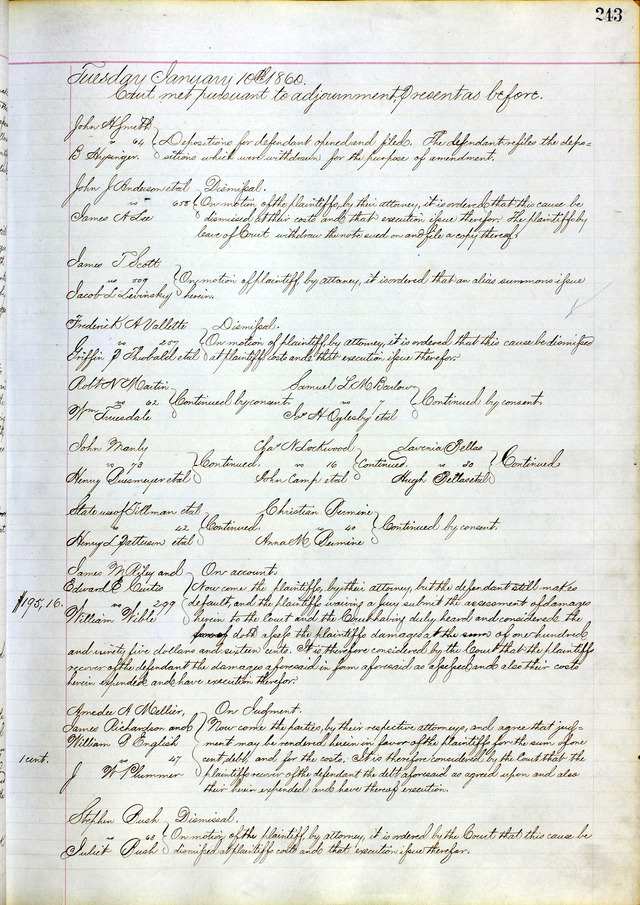 243
Tuesday January 10th 1860.
Court met pursuant to adjournment, Present as before.
John H Smith
vs 64 Depositions for defendant opened and filed. The defendant refiles the depo=
B Hysinger. sitions which were withdrawn for the purpose of amendment.
John J Anderson etal Dismissal.
vs 658 On motion of the plaintiffs, by their attorney, it is ordered that this cause be
James N Lee dismissed at their costs and that execution issue therefor. The plaintiff by
leave of Court withdraw the note sued on and file a copy thereof.
James T Scott
vs 559 On motion of plaintiff by attorney, it is ordered that an alias summons issue
Jacob L Levinsky herein.
Frederick A Vallette Dismissal.
vs 257 On motion of plaintiff by attorney, it is ordered that this cause be dismissed
Griffin P Theobald etal at plaintiffs costs and that execution issue therefor.
Robt N Martin Samuel L M Barlow
vs 62 Continued by consent. vs 7 Continued by consent.
Wm Truesdale H Oglesby etal
John Manly Chas N Lockwood Lavinia Pellas
vs 73 Continued. vs 16 Continued. vs 30 Continued
Henry etal John Camp etal Hugh Pellas etal
State use of Tillman etal Christian Permine
vs 42 Continued. vs 40 Continued by consent.
Henry L Patterson etal Anna M Permine
James W Riley and On account.
Edward E Curtis Now come the plaintiffs, by their attorney, but the defendant still makes
$195,16. vs 299 default, and the plaintiffs waiving a jury submit the assessment of damages
William Wible herein to the Court and the Court having duly heard and considered the
doth assess the plaintiffs damages at the sum of one hundred
and ninety five dollars and sixteen cents. It is therefore considered by the Court that the plaintiffs
recover of the defendant the damages aforesaid in form aforesaid as assessed, and also their costs
herein expended, and have execution therefor.
Amedee A Mellier, On Judgment.
James Richardson and Now come the parties, by their respective attorneys, and agree that judg-
William B English ment may be rendered herein in favor of the plaintiff for the sum of one
1 cent. vs 47 cent, debt, and for the costs. It is therefore considered by the Court that the
J W Plummer plaintiffs recover of the defendant the debt aforesaid as agreed upon and also
their herein expended and have thereof execution.
Stephen Bush Dismissal.
vs 60 On motion of the plaintiff, by attorney, it is ordered by the Court that this cause be
Juliet Bush dismissed at plaintiffs costs and that execution issue therefor.